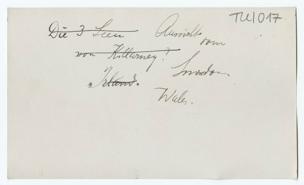 TU/017
Die 3 Seen Aussicht
von Killarney! vom
Irland. Snowdon
Wales.